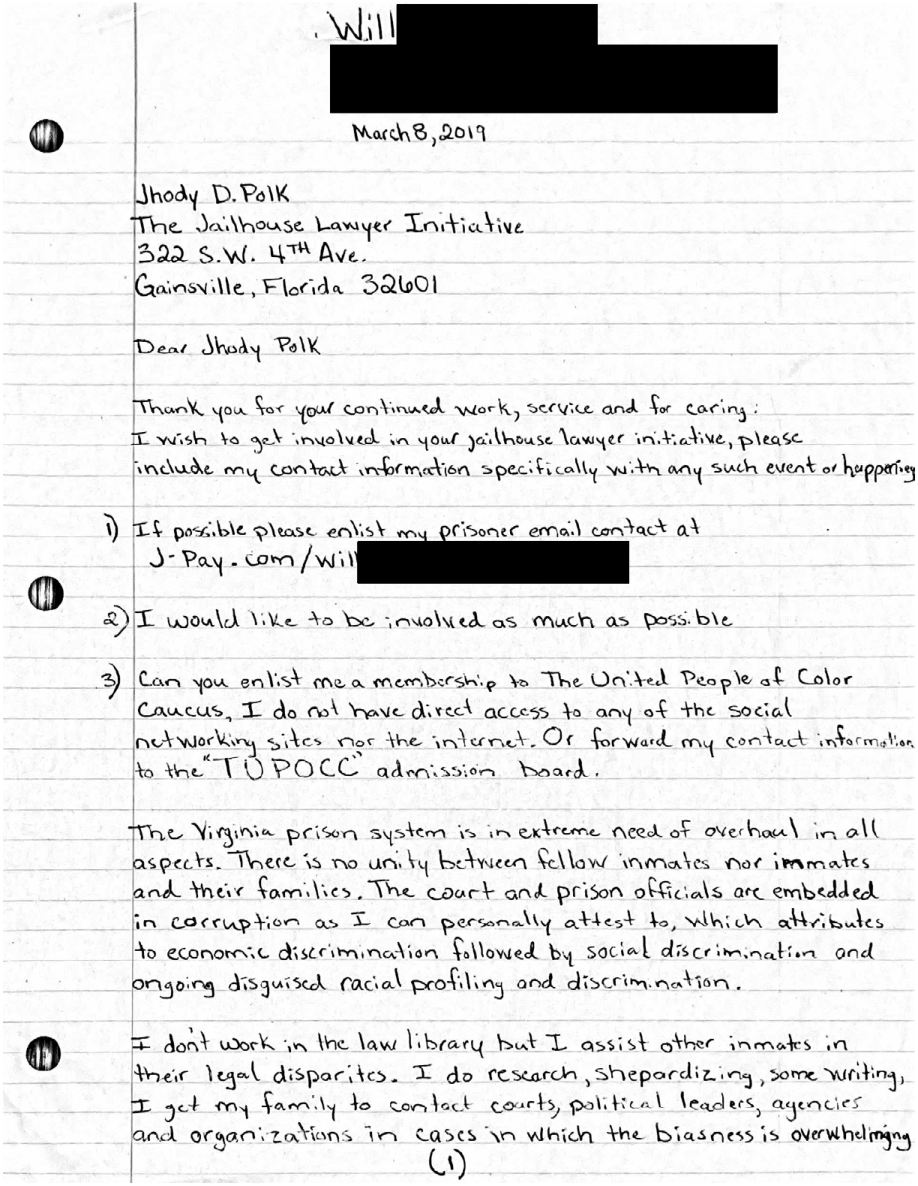 . Will
March 8, 2019
Jhody D. Polk
The Jailhouse Lawyer Initiative
322 S.W. 4TH Ave.
Gainsville, Florida 32601
Dear Jhody Polk
Thank you for your continued work, service and for caring:
I wish to get involved in your jailhouse lawyer initiative, please
include my contact information specifically with any such event or happening
1) If possible please enlist my prisoner email contact at
J-Pay.com/Will
2) I would like to be involved as much as possible
3) Can you enlist me a membership to The United People of Color
Caucus, I do not have direct access to any of the social
networking sites nor the internet. Or forward my contact information
to the "TUPOCC" admission board.
The Virginia prison system is in extreme need of overhaul in all
aspects. There is no unity between fellow inmates nor immates
and their families. The court and prison officials are embedded
in corruption as I can personally attest to, which attributes
to economic discrimination followed by social discrimination and
ongoing disguised racial profiling and discrimination.
I don't work in the law library but I assist other inmates in
their legal disparites. I do research, shepardizing, some writing,
I get my family to contact courts, political leaders, agencies
and organizations in cases in which the biasness is overwhelmingng
(1)